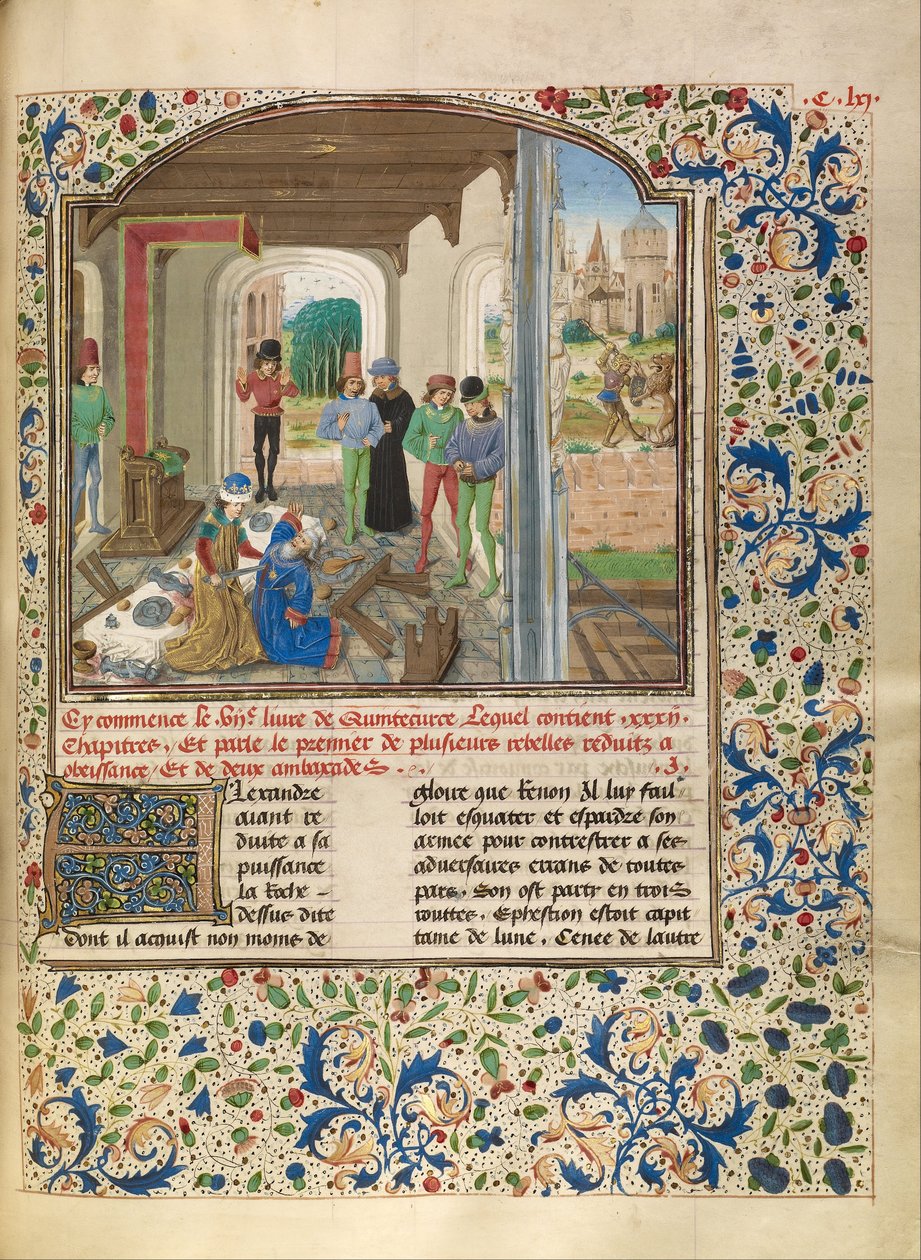 .C.lxj.
Cy commence le .viije. livre de Quintecurce Lequel contient .xxxij.
Chapitres, Et parle le premier de plusieurs rebelles reduitz a
obeissance/ Et de deux ambaxades .j.
Alexandre
aiant re
duite a sa
puissance
la Roche -
dessus dite
Dont il acquist non moins de
gloire que Renon Il luy fail
loit esquater et espardre son
armee pour contrestrer a ses
adversaires errans de toutes
pars. Son ost party en trois
routtes. Ephestion estoit capit
taine de lune. Cenee de lautre